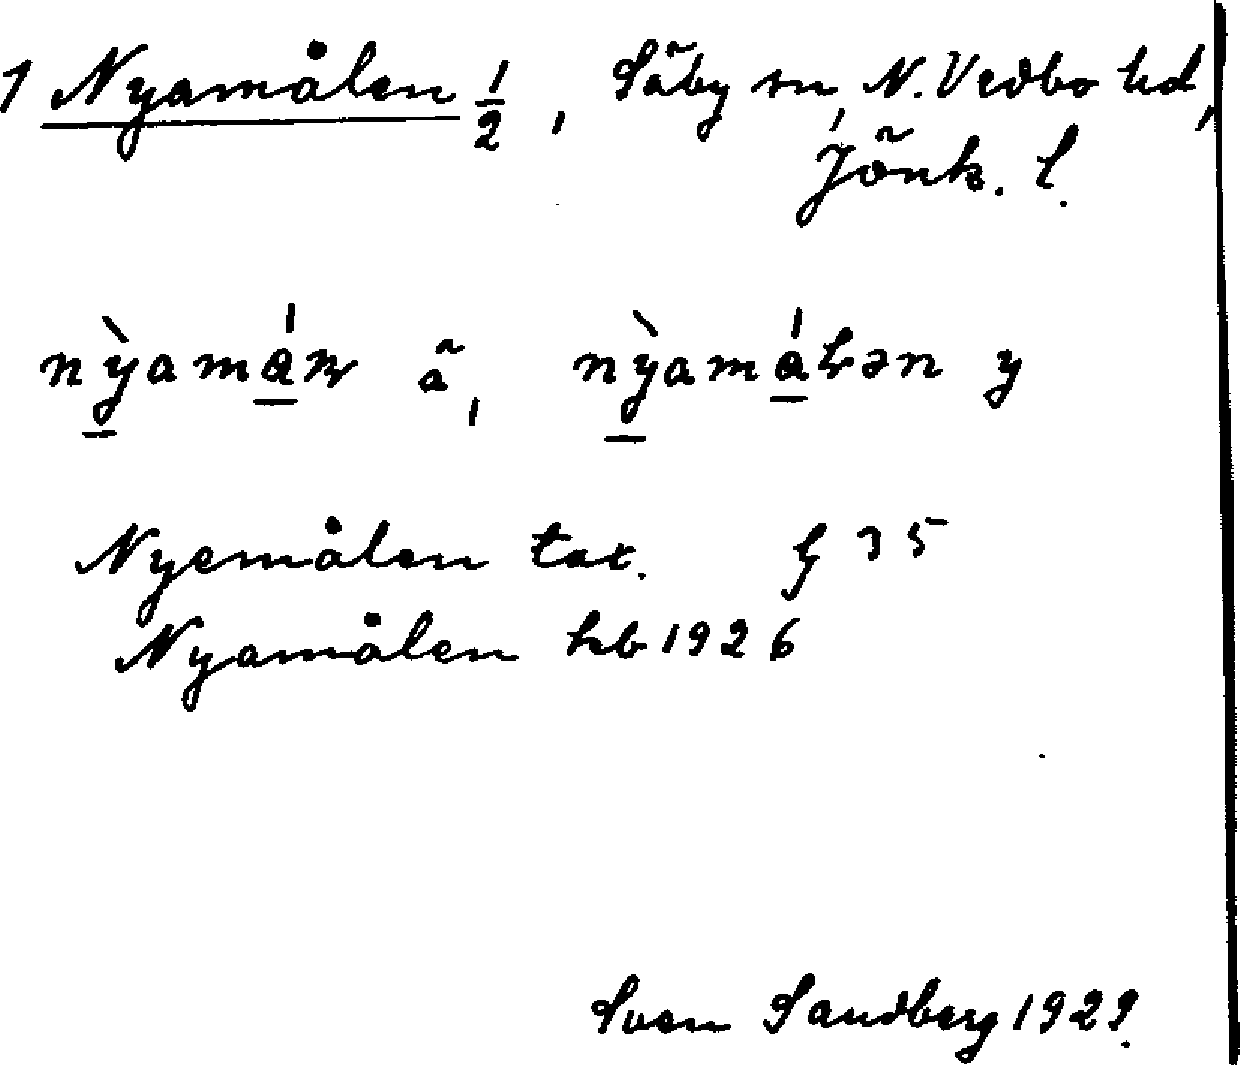 1 Nyamålen 1/2, Säby sn, N. Vedbo hd,
Jönk. l.
nỳamán ä, nỳamáłən y
Nyemålen tax. § 35
Nyamålen hb 1926
Sven Sandberg 1929.